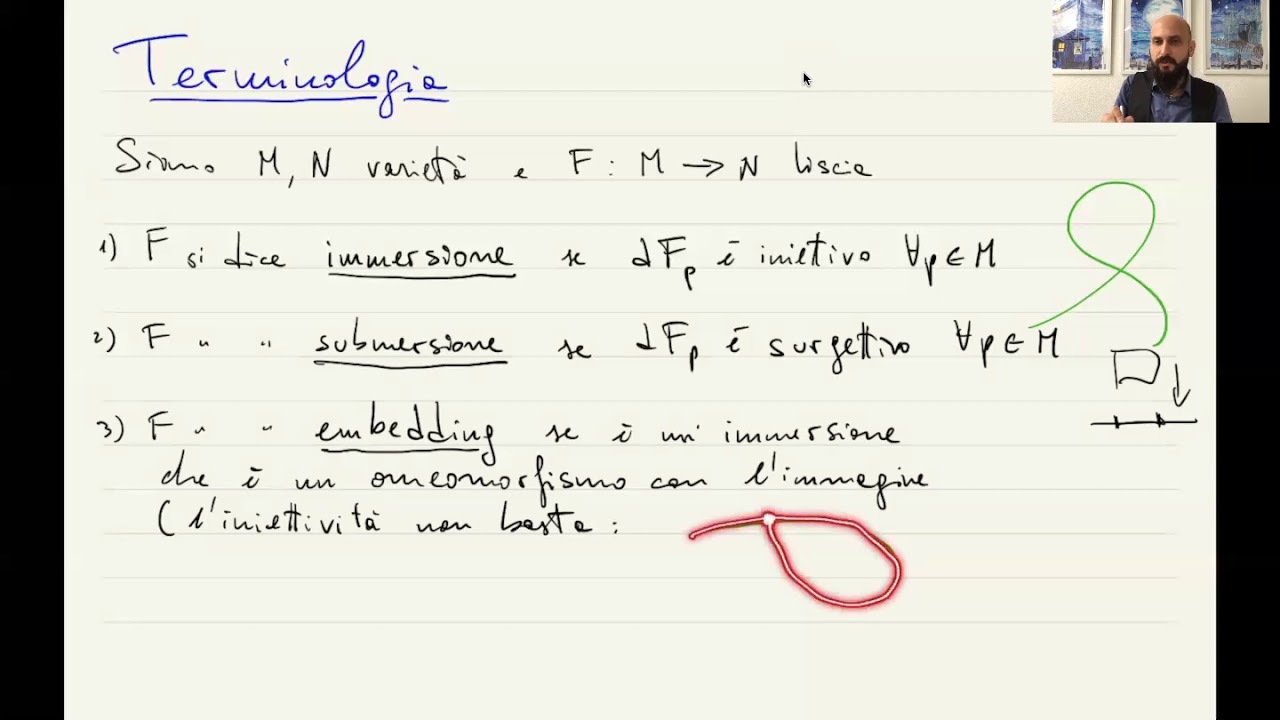 Terminologia
Siano M, N varietà e F : M → N liscia
1) F si dice immersione se dFp è iniettivo ∀p ∈ M
2) F " " submersione se dFp è surgettivo ∀p ∈ M
3) F " " embedding se è un' immersione
che è un omeomorfismo con l'immagine
(l'iniettività non basta :